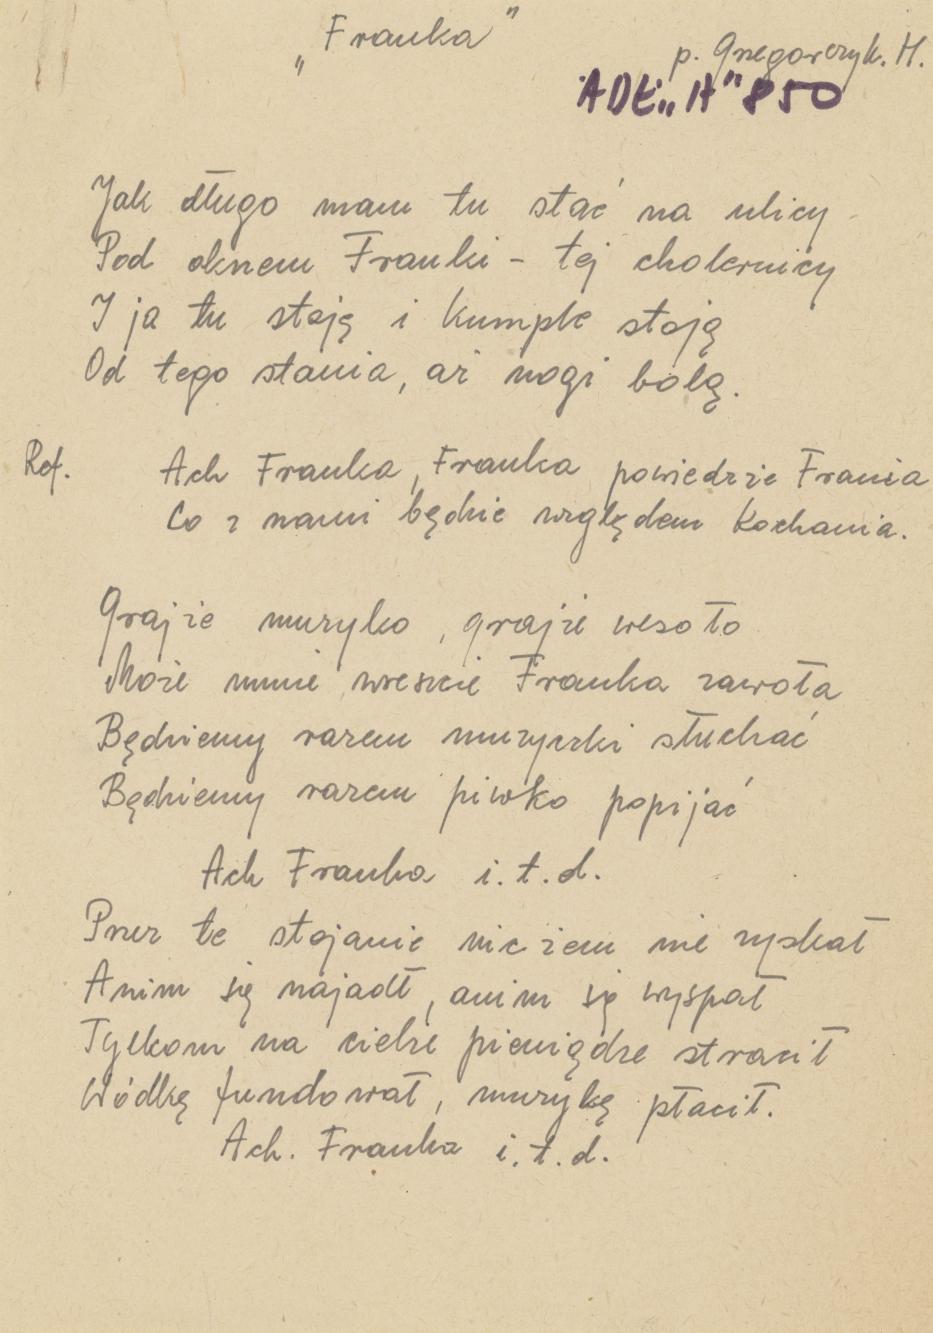 „Franka”
p. Gregorczyk. H.
ADE „H” 850
Jak długo mam tu stać na ulicy
Pod oknem Franki – tej cholernicy
I ja tu stoję i kumple stoją
Od tego stania, aż nogi bolą.
Ref. Ach Franka, Franka powiedzże Frania
Co z nami będzie względem kochania.
Grajże muzyko, grajże wesoło
Może mnie wreszcie Franka zawoła
Będziemy razem muzyczki słuchać
Będziemy razem piwko popijać
Ach Franka i.t.d.
Przez te stojanie nic żem nie zyskał
Anim się najadł, anim się wyspał
Tylkom na ciebie pieniądze stracił
Wódkę fundował, muzykę płacił.
Ach. Franka i.t.d.